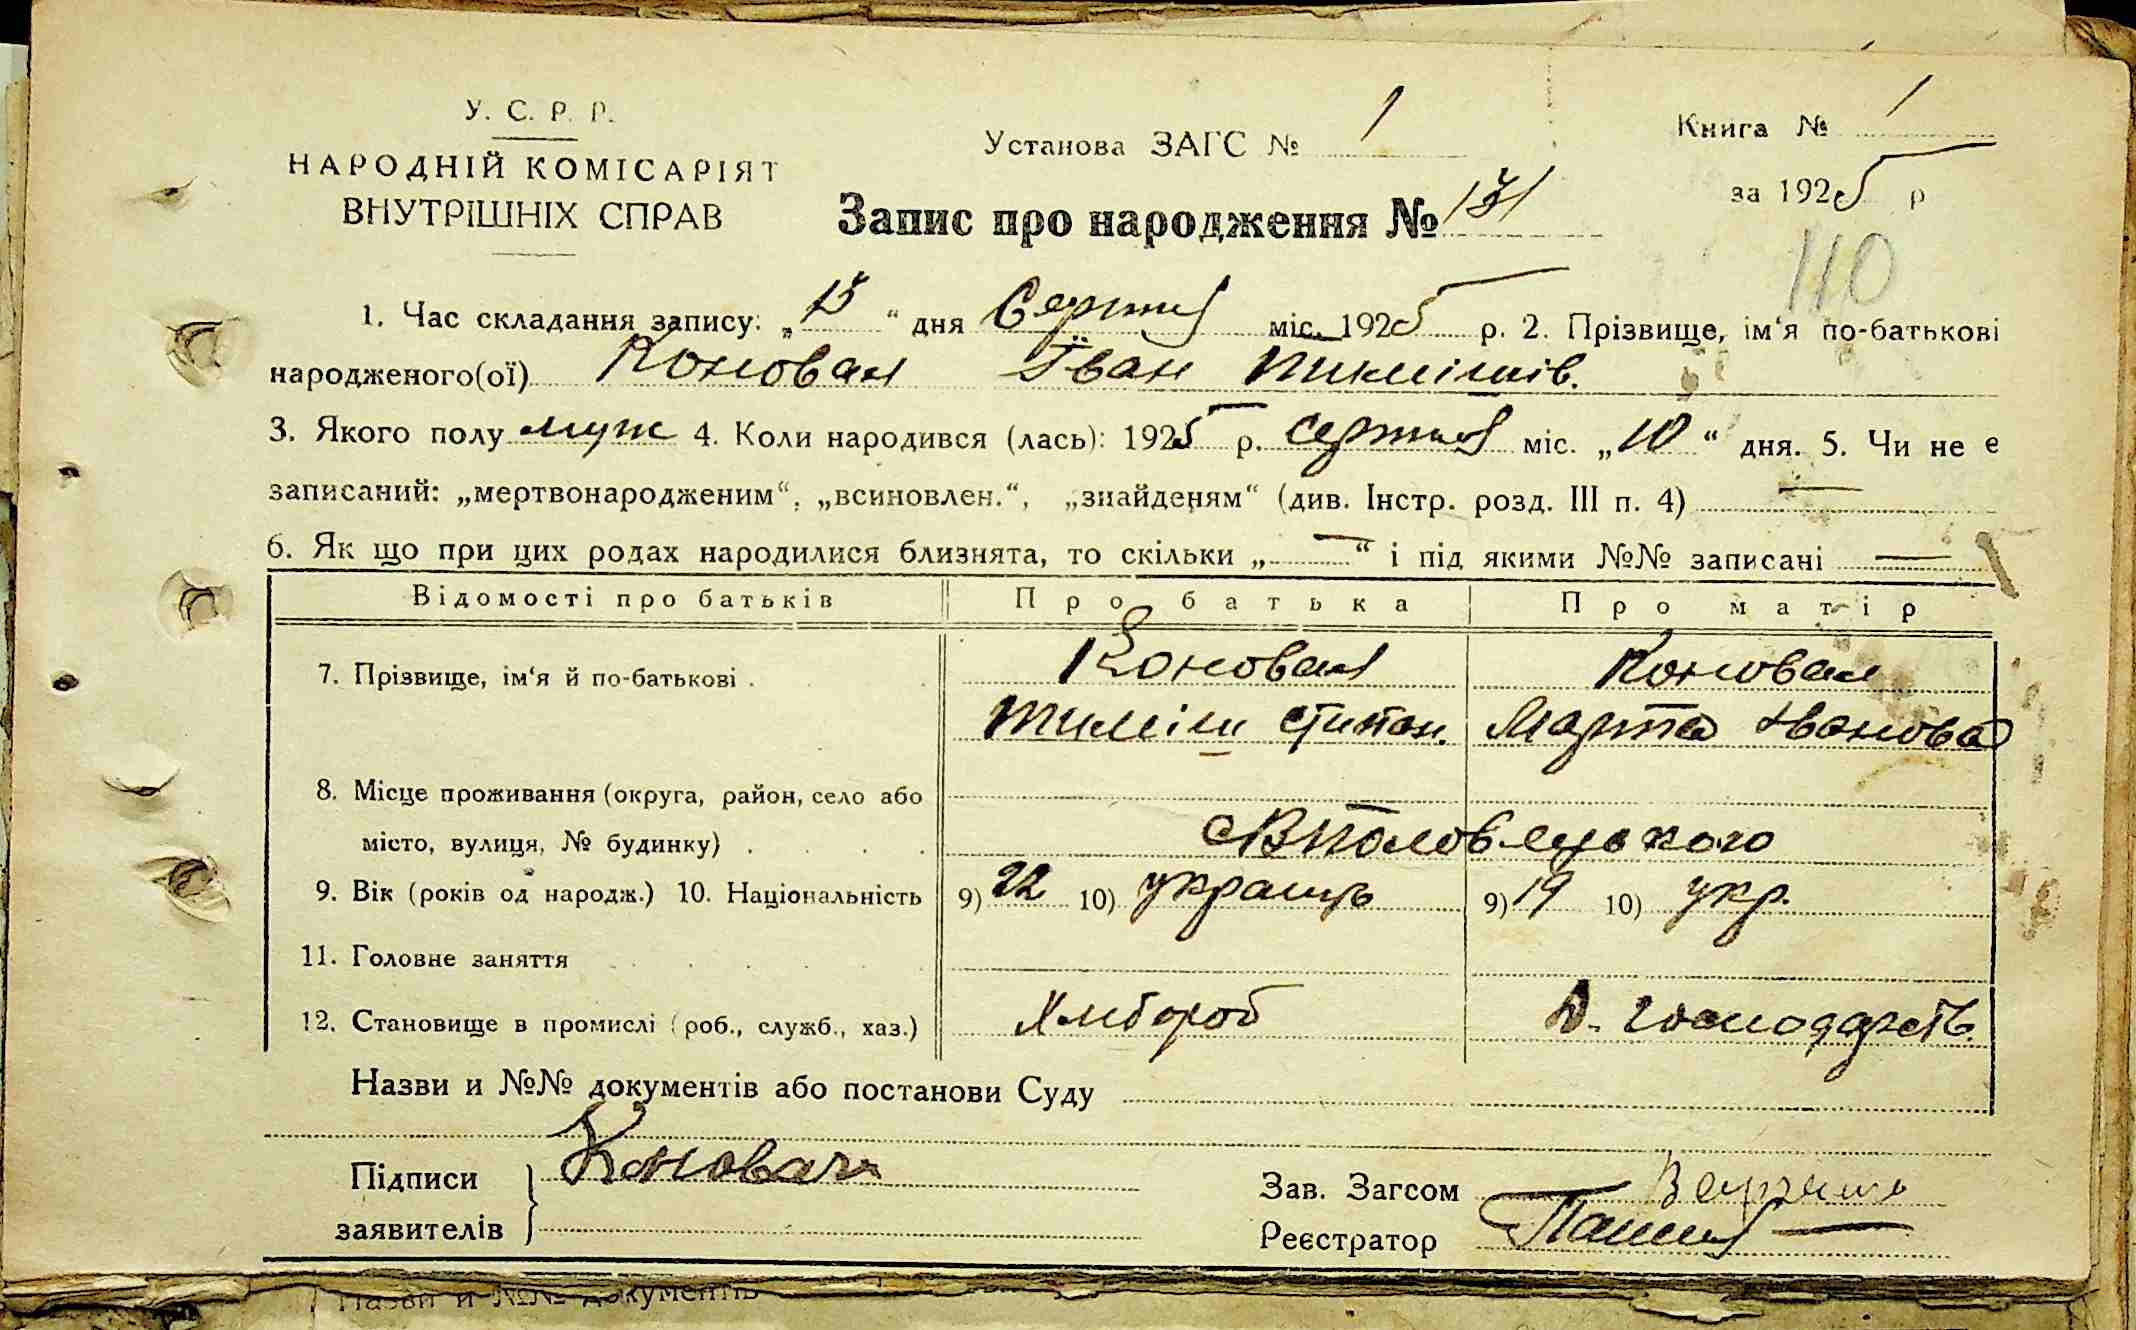 У. С. Р. Р.
НАРОДНІЙ КОМІСАРІЯТ
ВНУТРІШНІХ СПРАВ
Установа ЗАГС № 1
Книга № 1
за 1925 р
Запис про народження № 131
110
1. Час складання запису: „13“ дня Серпня міс. 1925 р. 2. Прізвище, ім‘я по-батькові
народженого(ої) Коновал Іван Тимішів.
3. Якого полу муж 4. Коли народився (лась): 1925 р. серпня міс. „10“ дня. 5. Чи не е
записаний: „мертвонародженим“, „всиновлен.“, „знайденям“ (див. Інстр. розд. III п. 4) —
6. Як що при цих родах народилися близнята, то скільки „—“ і під якими №№ записані —
Відомості про батьків Про батька Про матір
7. Прізвище, ім‘я й по-батькові . Коновал Коновал
Тиміш Степан. Марта Іванова
8. Місце проживання (округа, район, село або
місто, вулиця, № будинку) . . . .
9. Вік (років од народж.) 10. Національність 9) 22 10) українць 9) 19 10) укр.
11. Головне заняття
12. Становище в промислі (роб., служб., хаз.) Хлібороб Д. господарств.
Назви и №№ документів або постанови Суду
Підписи Коновал
заявителів
Зав. Загсом
Реєстратор
Назви и №№ документів